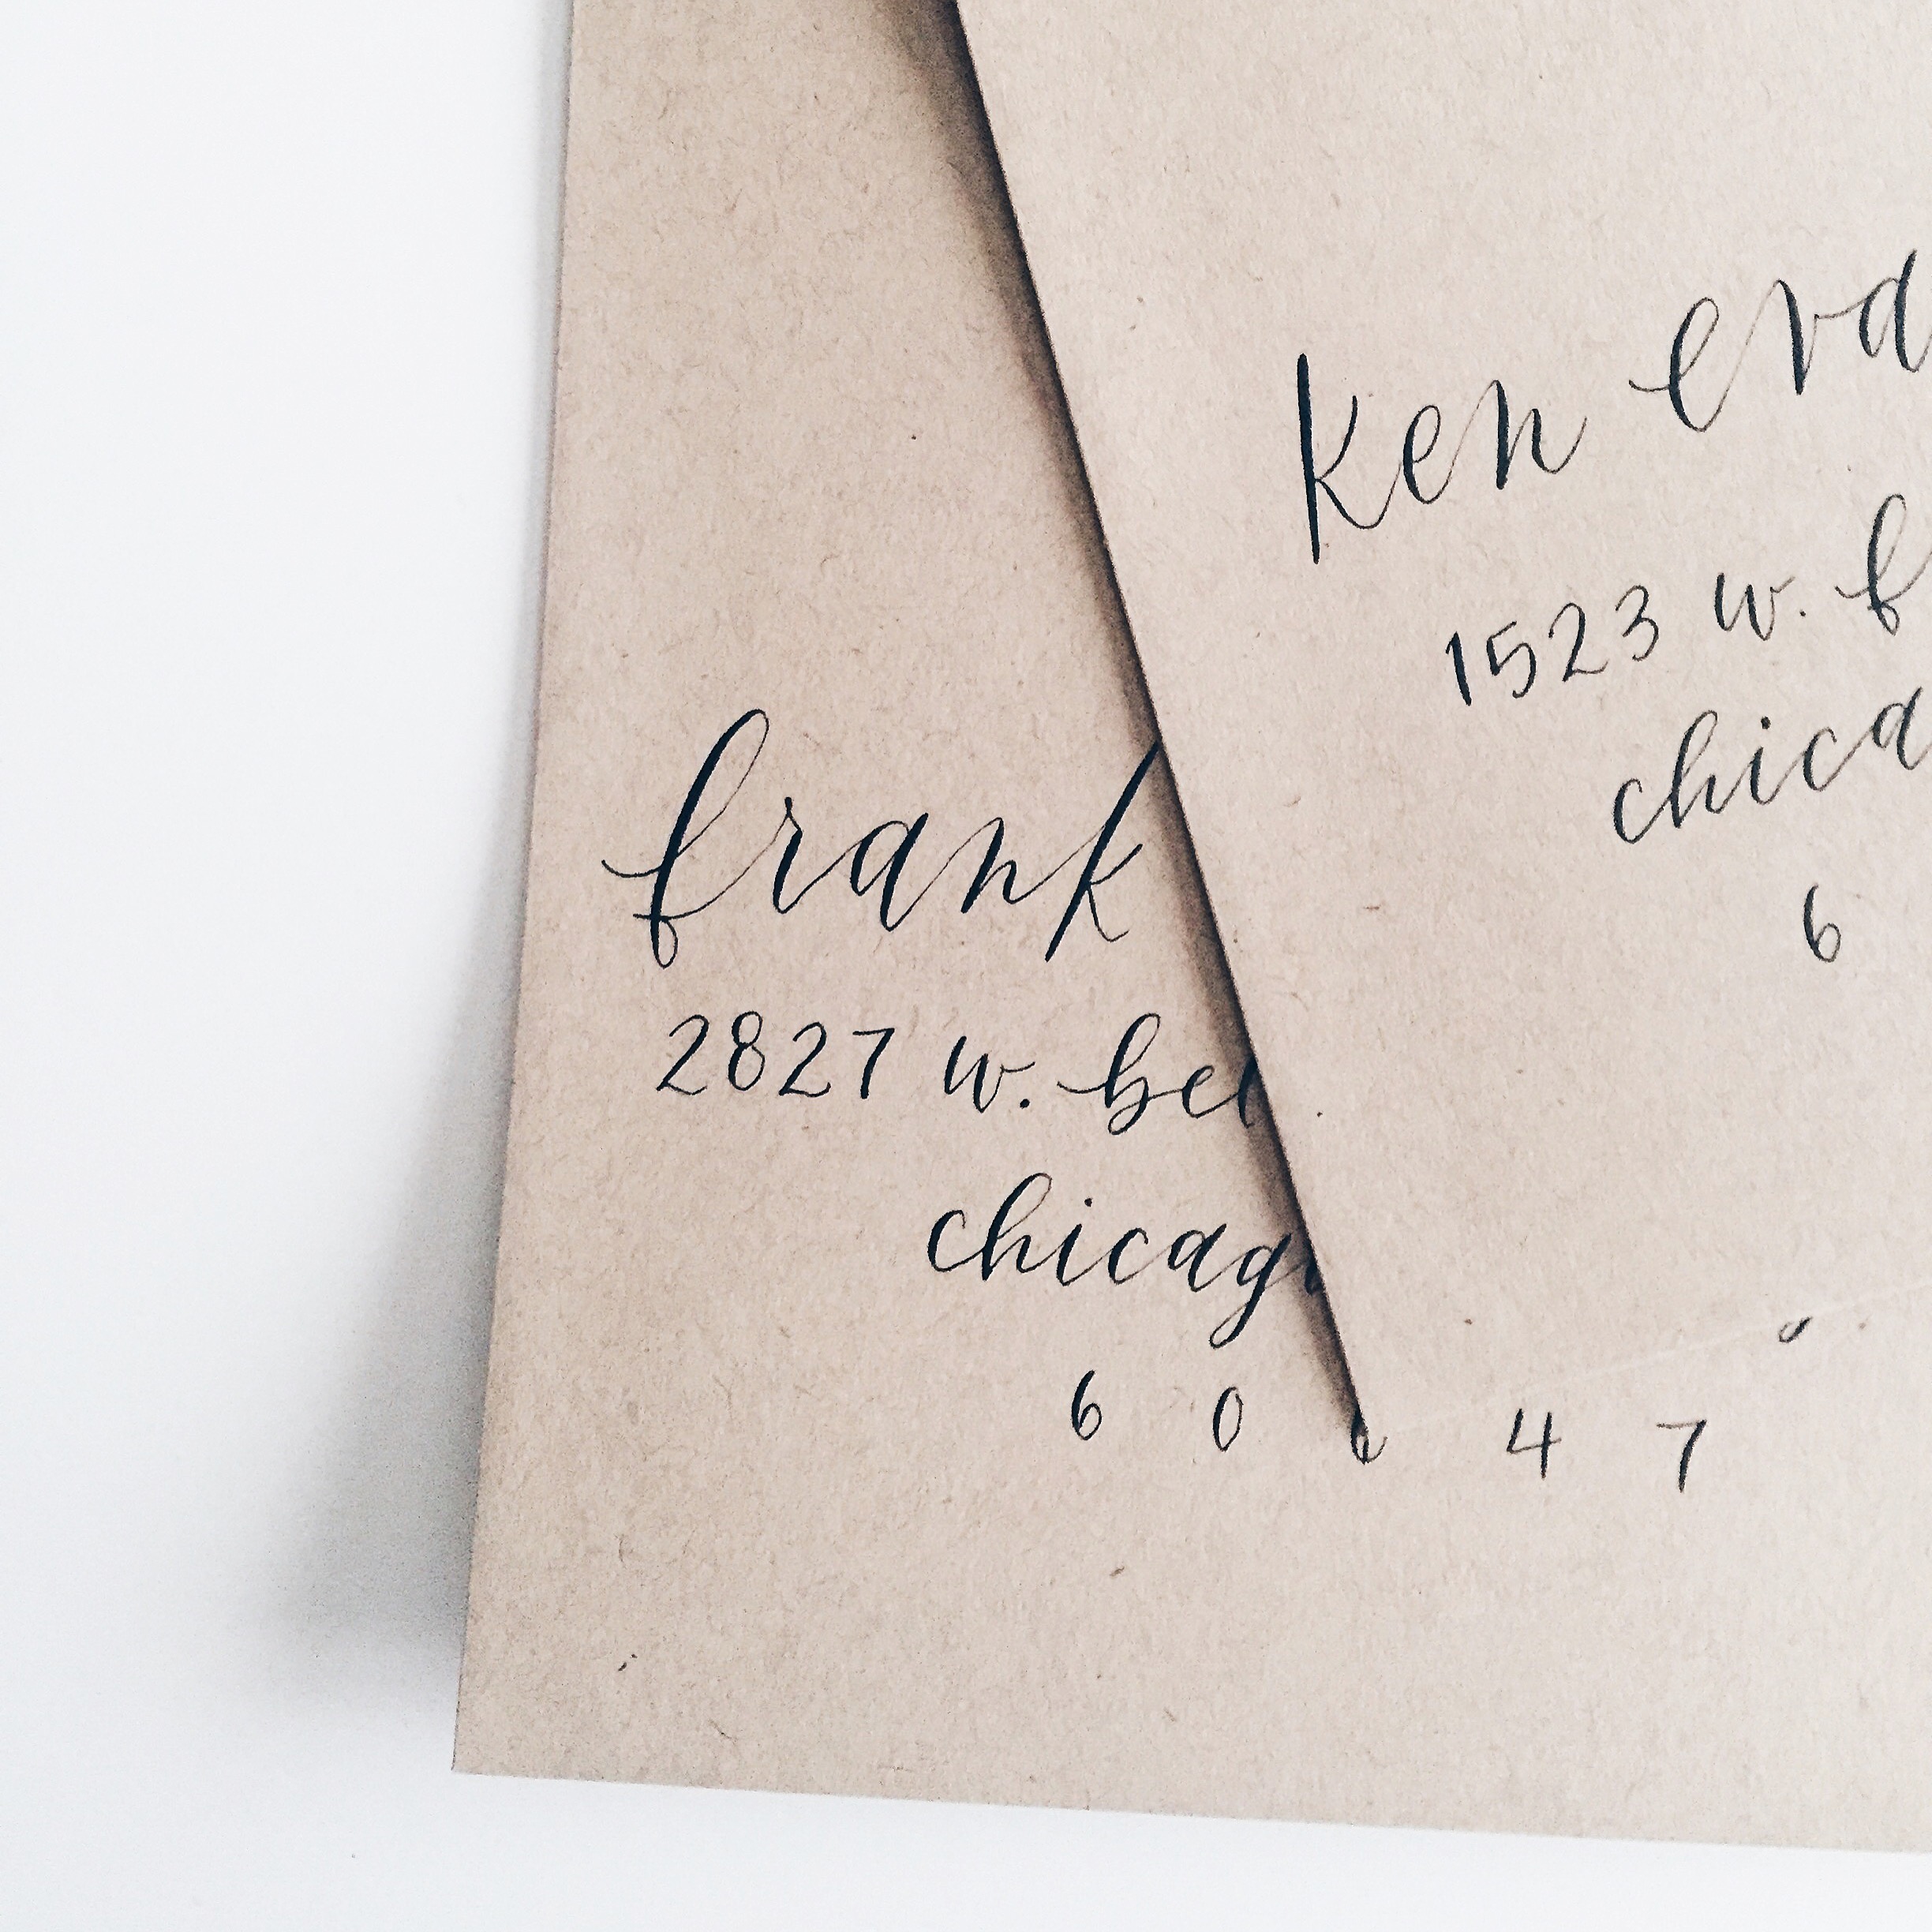 frank
2827 w. bel
chicago
6 0 6 4 7
ken eva
1523 w. f
chica
6